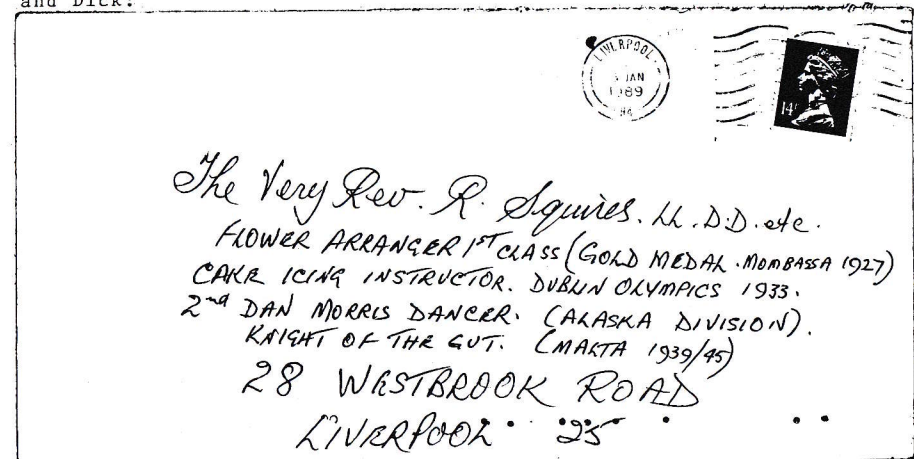 and Dick:
LIVERPOOL
JAN
1989
14
The Very Rev. R. Squires. LL. D.D. etc.
FLOWER ARRANGER 1ST CLASS (GOLD MEDAL. MOMBASSA 1927)
CAKE ICING INSTRUCTOR. DUBLIN OLYMPICS 1933.
2nd DAN MORRIS DANCER. (ALASKA DIVISION).
KNIGHT OF THE GUT. (MALTA 1939/45)
28 WESTBROOK ROAD
LIVERPOOL 25